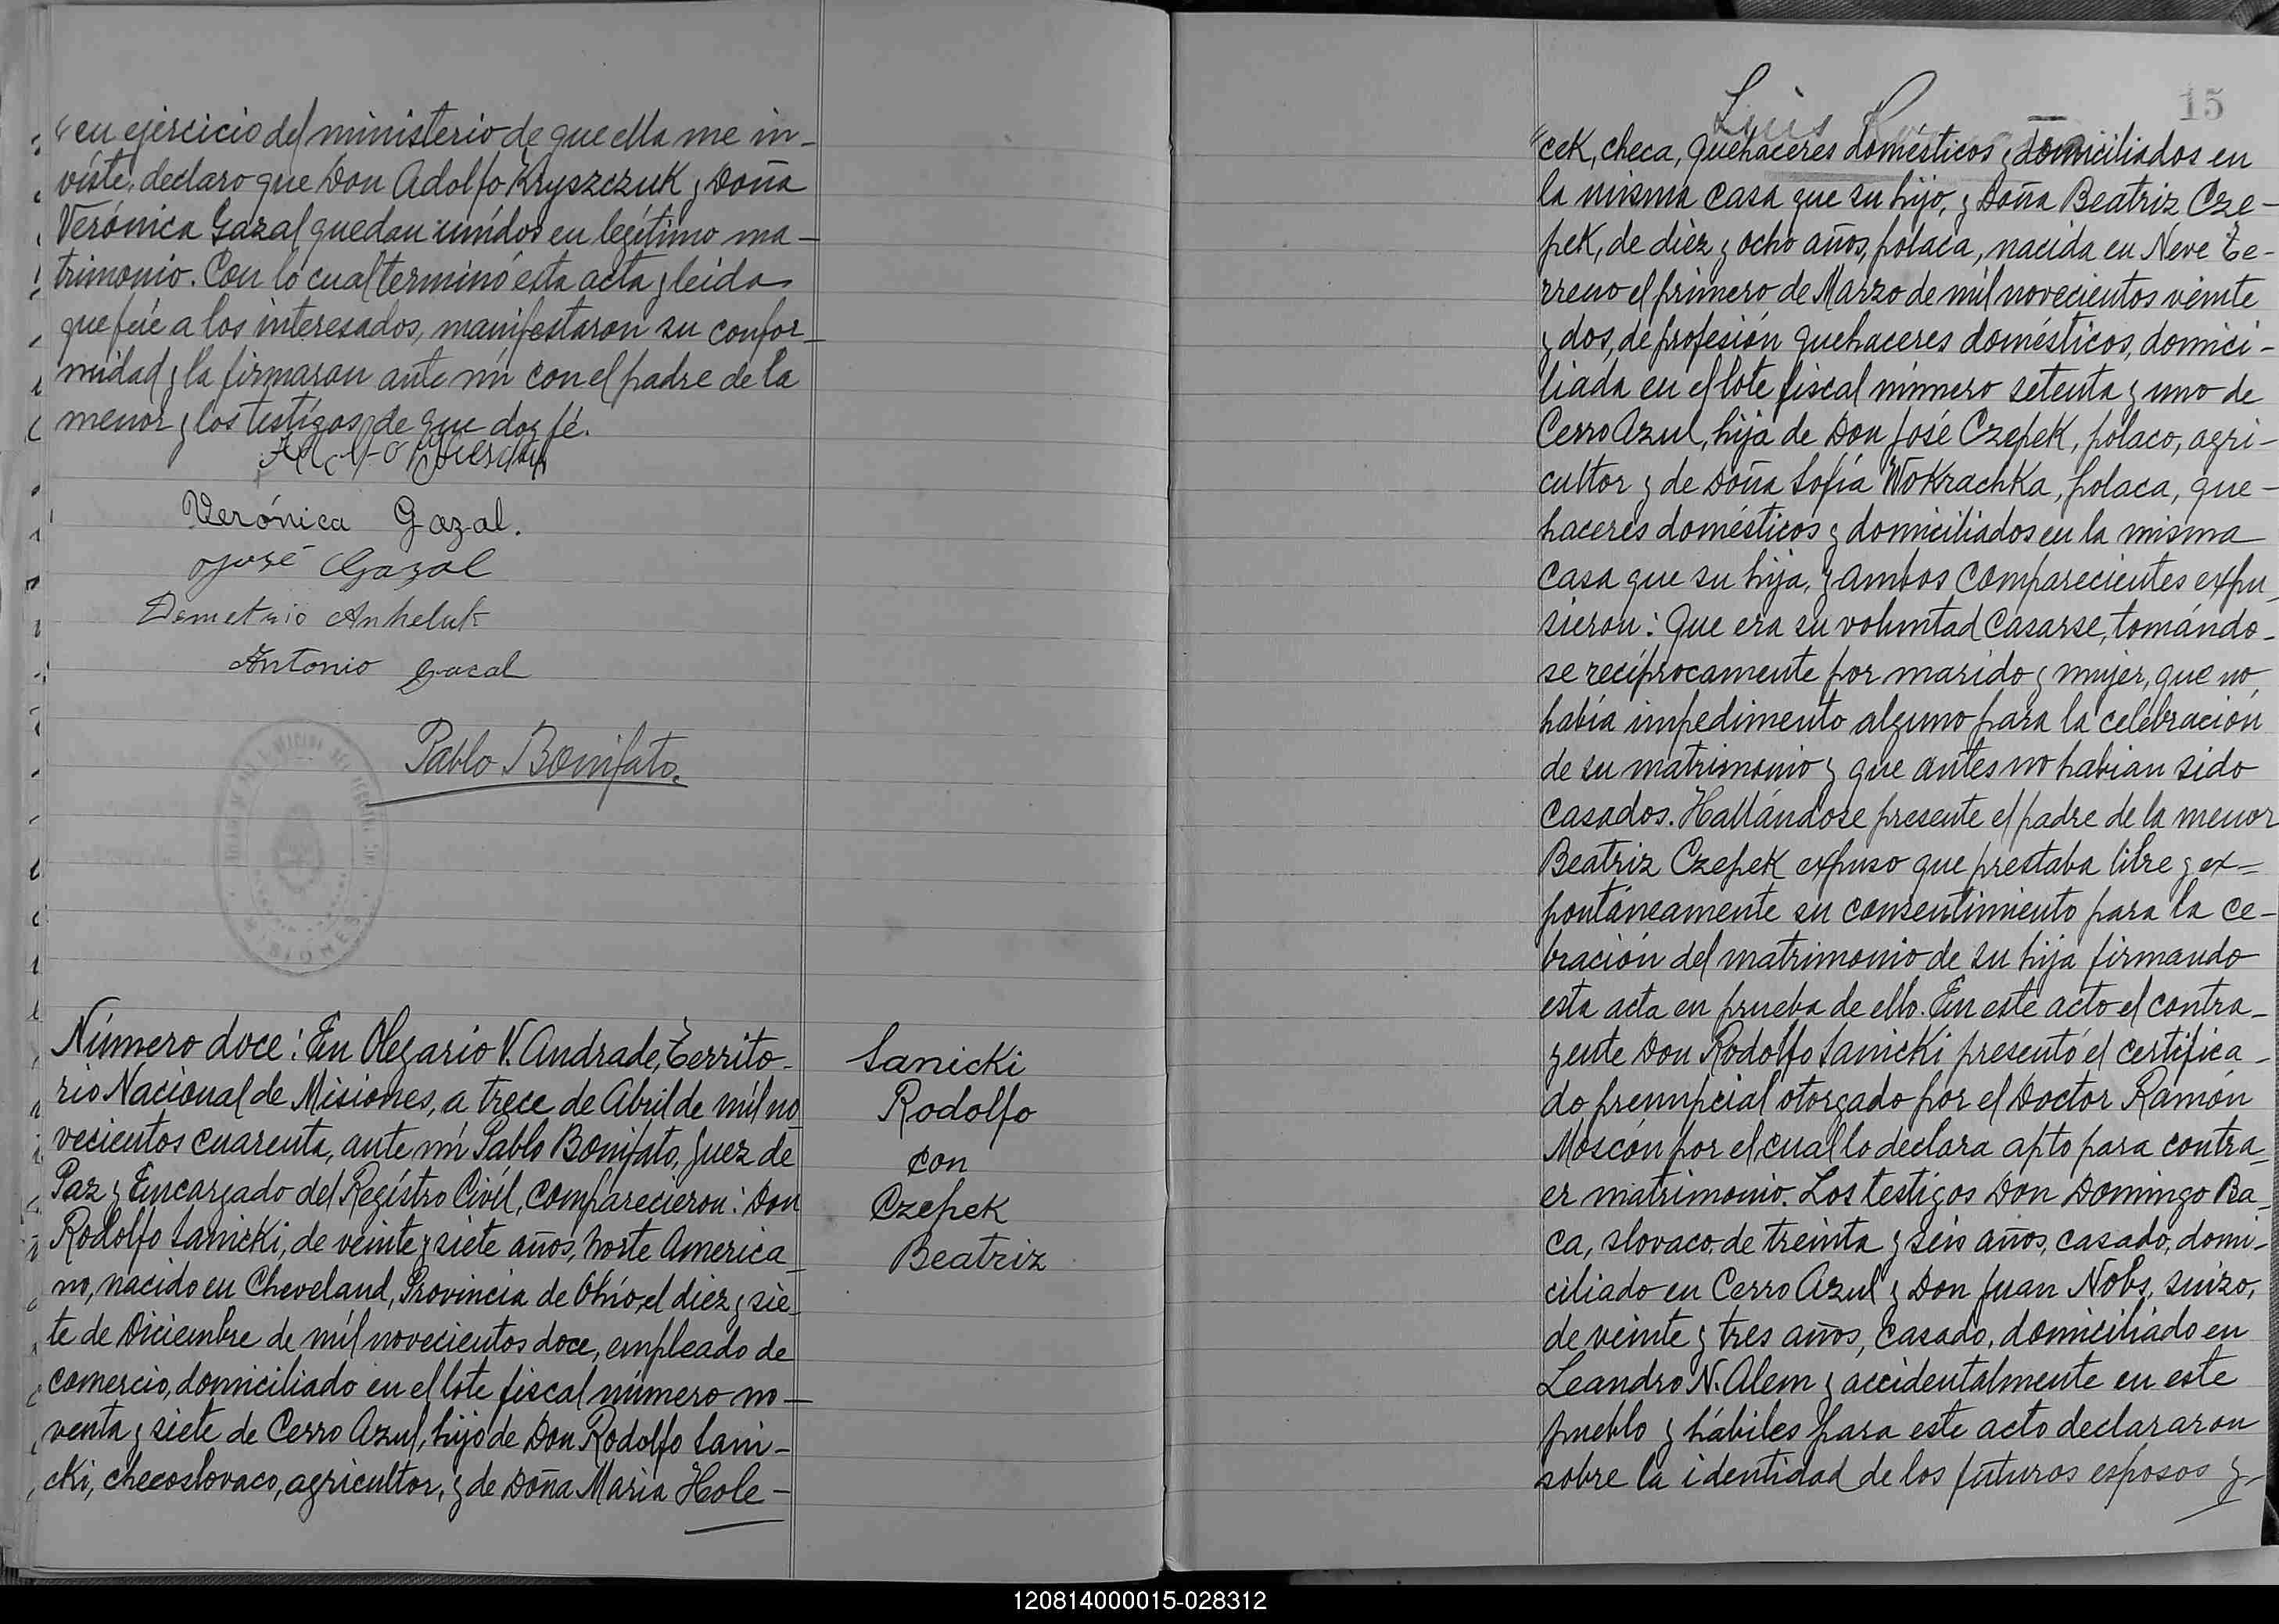 en ejercicio del ministerio de que ella me in-
viste, declaro que Don Adolfo Kryszczuk y Doña
Verónica Gazal quedan unidos en legítimo ma-
trimonio. Con lo cual terminó esta acta y leida
que fué a los interesados, manifestaron su confor-
midad y la firmaron ante mí con el padre de la
menor y los testigos de que doy fé.
Verónica Gazal.
José Gazal
Demetrio Anheluk
Antonio Gazal
Pablo Bonifato.
Número doce: En Olegario V. Andrade, Territo-
rio Nacional de Misiones, a trece de Abril de mil no
vecientos cuarenta, ante mí Pablo Bonifato, Juez de
Paz y Encargado del Regístro Civíl, comparecieron: Don
Rodolfo Sanicki, de veinte y siete años, Norte America
no, nacido en Cheveland, Provincia de Ohío, el diez y sie-
te de Diciembre de mil novecientos doce, empleado de
comercio, domiciliado en el lote fiscal número no-
venta y siete de Cerro Azul, hijo de Don Rodolfo Sani-
cki, checoslovaco, agricultor, y de Doña Maria Hole-
Sanicki
Rodolfo
con
Czepek
Beatriz
15
Luis
cek, checa, quehaceres domésticos y domiciliados en
la misma casa que su hijo, y Doña Beatriz Cze-
pek, de diez y ocho años, polaca, nacida en Neve Te-
rreno el primero de Marzo de mil novecientos veinte
y dos, de profesión quehaceres domésticos, domici-
liada en el lote fiscal número setenta y uno de
Cerro Azul, hija de Don José Czepek, polaco, agri-
cultor y de Doña Sofía Wokrachka, polaca, que-
haceres domésticos y domiciliados en la misma
casa que su hija, y ambos comparecientes expu
sieron: Que era su voluntad casarse, tomándo-
se recíprocamente por marido y mujer, que no
había impedimento alguno para la celebración
de su matrimonio y que antes no habian sido
casados. Hallándose presente el padre de la menor
Beatriz Czepek expuso que prestaba libre y ex=
pontáneamente su consentimiento para la ce-
bración del matrimonio de su hija firmando
esta acta en prueba de ello. En este acto el contra-
yente Don Rodolfo Sanicki presentó el certifica-
do prenupcial otorgado por el Doctor Ramón
Moscón por el cual lo declara apto para contra-
er matrimonio. Los testigos Don Domingo Ba-
ca, slovaco, de treinta y seis años, casado, domi-
ciliado en Cerro Azul y Don Juan Nobs, suizo,
de veinte y tres años, casado, domiciliado en
Leandro N. Alem y accidentalmente en este
pueblo y hábiles para este acto declararon
sobre la identidad de los futuros esposos y
120814000015-028312